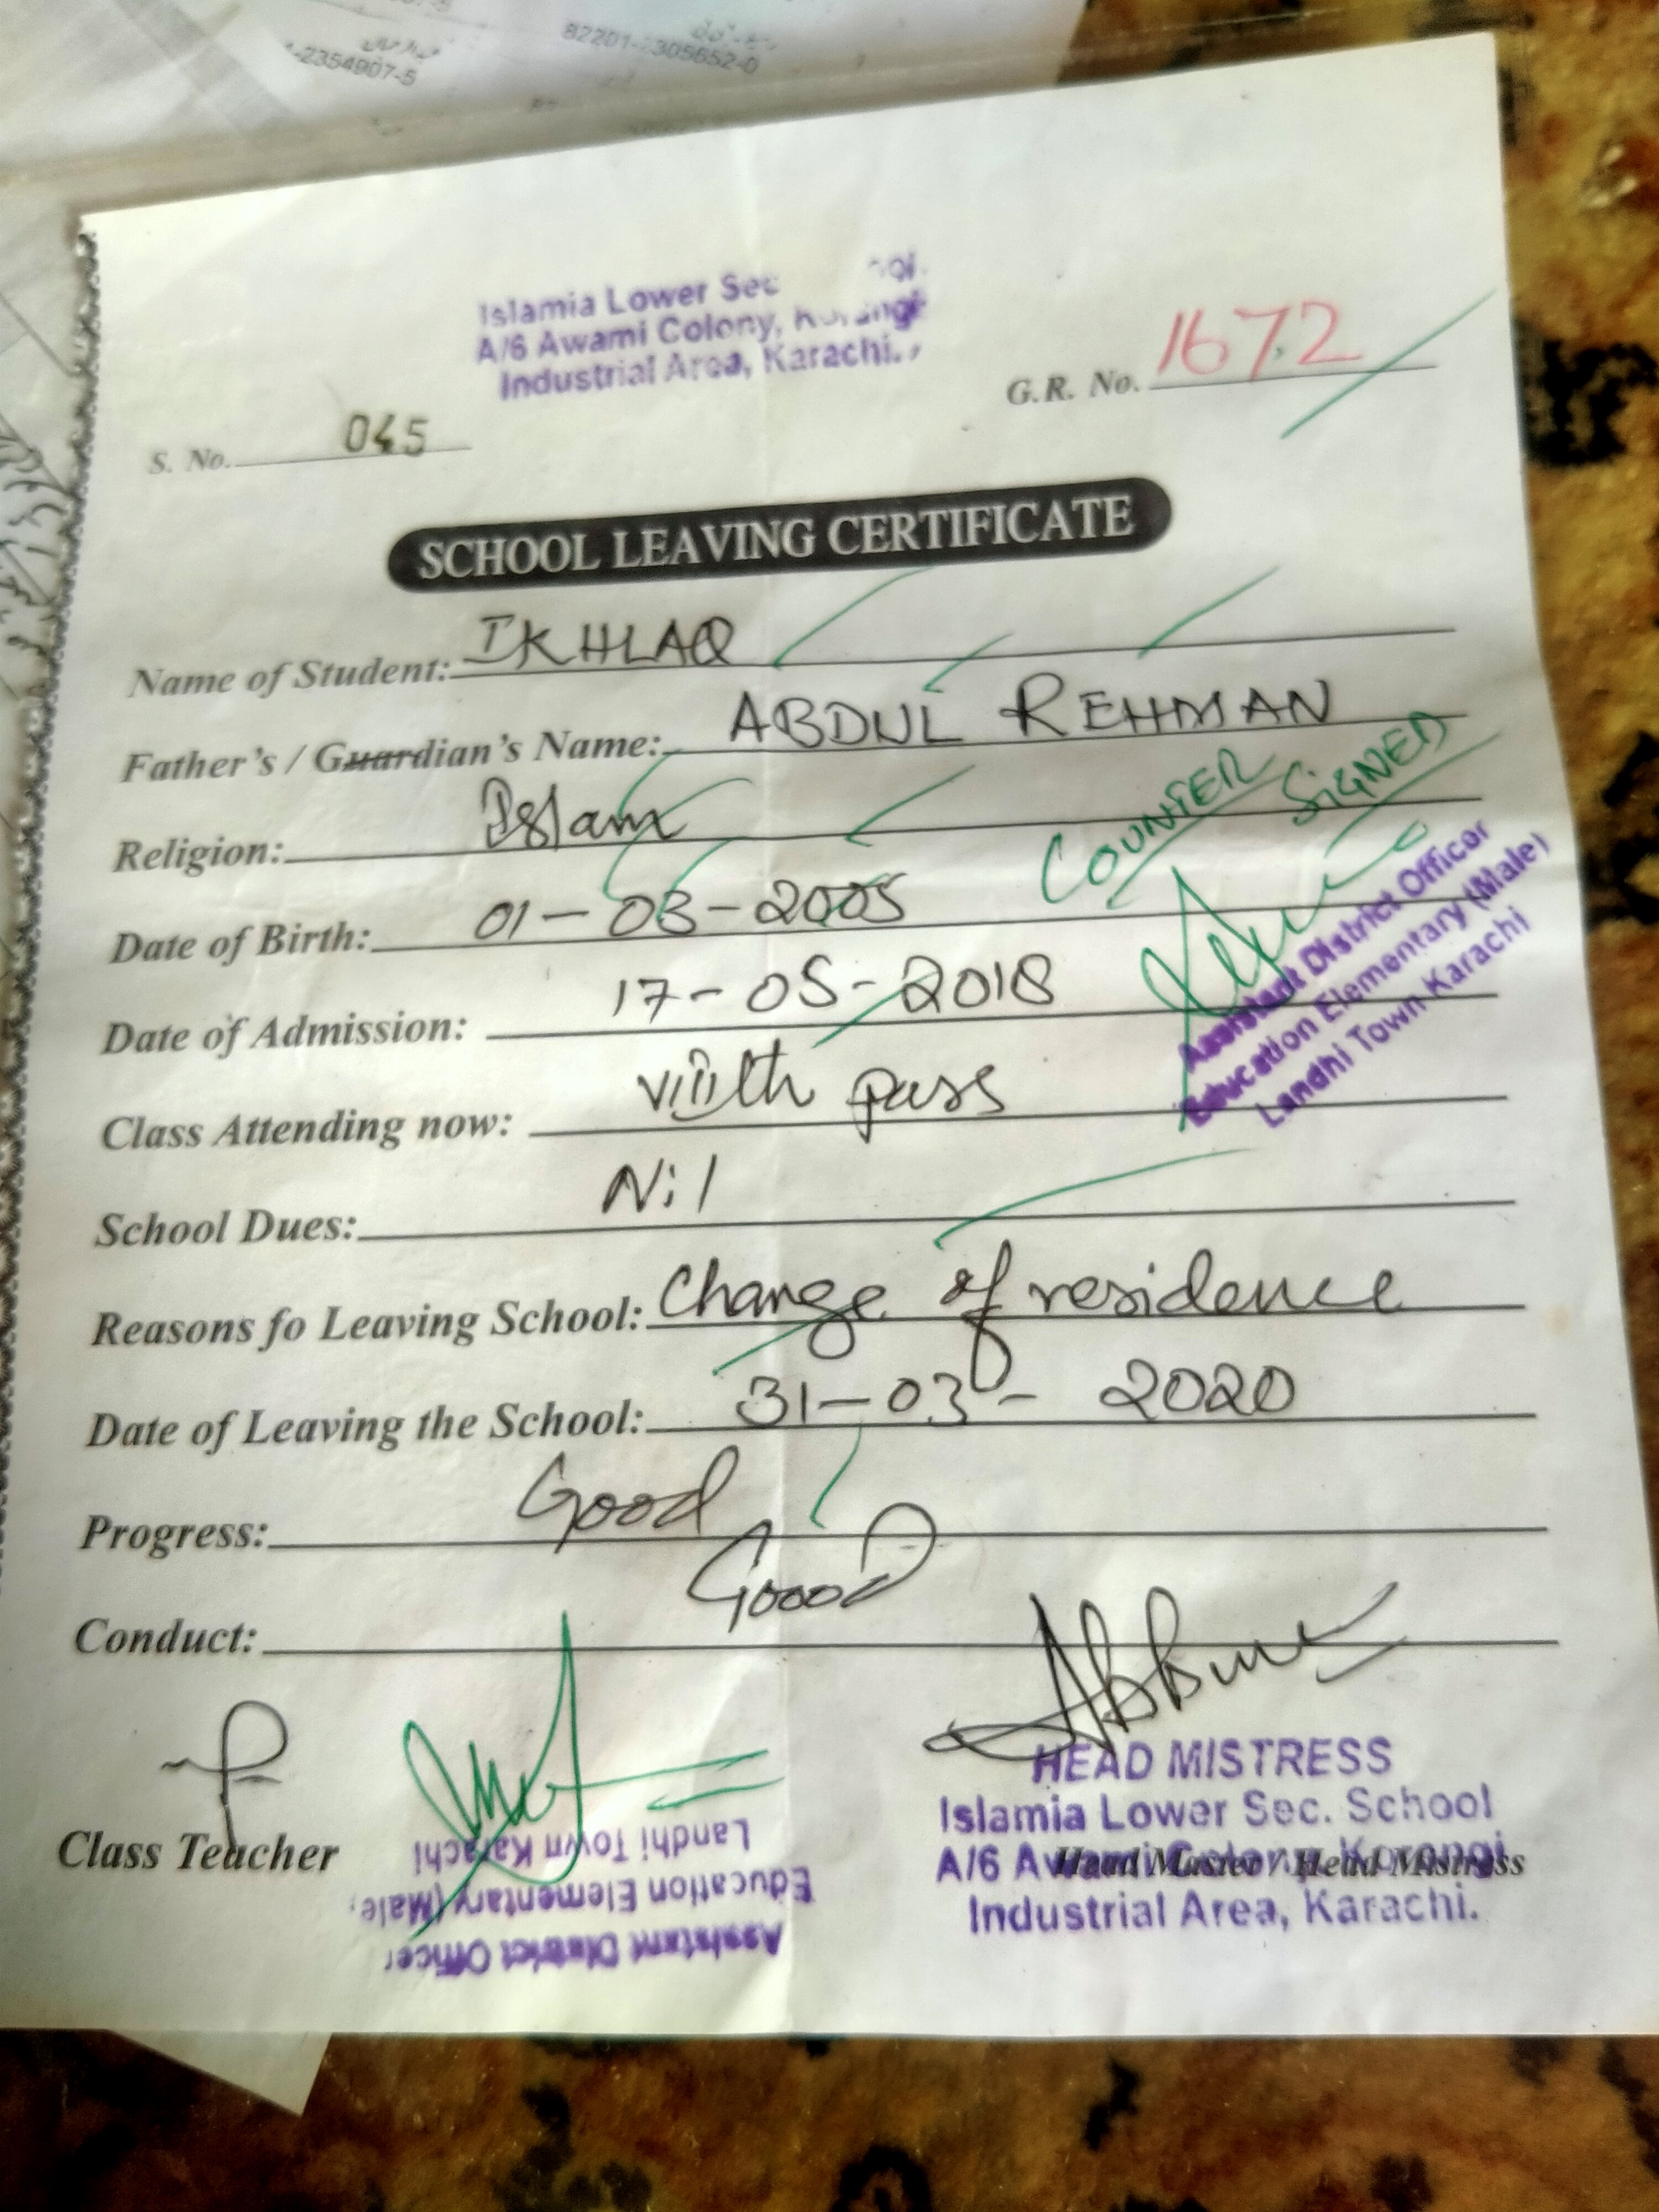 -2354907-5
82201- 305652-0
Islamia Lower Sec
A/6 Awami Colony, Korangi
Industrial Area, Karachi.
G.R. No. 1672
S. No. 045
SCHOOL LEAVING CERTIFICATE
Name of Student: IKHLAQ
Father's / Guardian's Name: ABDUL REHMAN
Religion: Islam
COUNTER SIGNED
Date of Birth: 01-03-2005
Date of Admission: 17-05-2018
Assistant District Officer
Education Elementary (Male)
Landhi Town Karachi
Class Attending now: VIIIth pass
School Dues: Nil
Reasons fo Leaving School: Change of residence
Date of Leaving the School: 31-03- 2020
Progress: Good
Conduct: Good
Class Teacher
Assistant District Officer
Education Elementary (Male
Landhi Town Karachi
HEAD MISTRESS
Islamia Lower Sec. School
A/6 Awami Colony, Korangi
Head Master / Head Mistress
Industrial Area, Karachi.